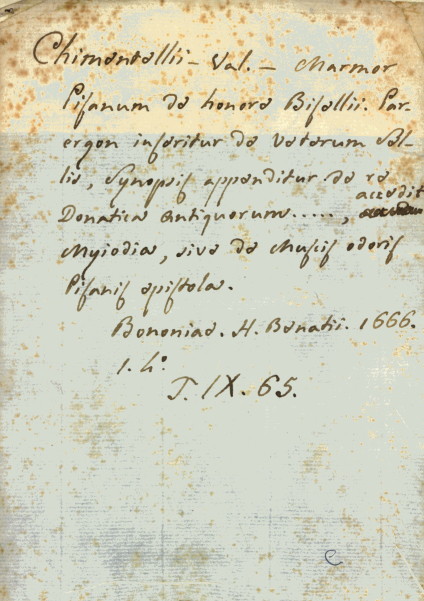 Chimentellii - Val. - Marmor
Pisanum de honore Bisellii. Par-
ergon inseritur de Veterum Sel-
lis, Synopsis appenditur de re
Donatica antiquorum....., accedit
Myiodia, sive de Muscis odoris
Pisanis epistola.
Bononiae. H. Benatii. 1666.
1. 4º.
T. IX. 65.
e